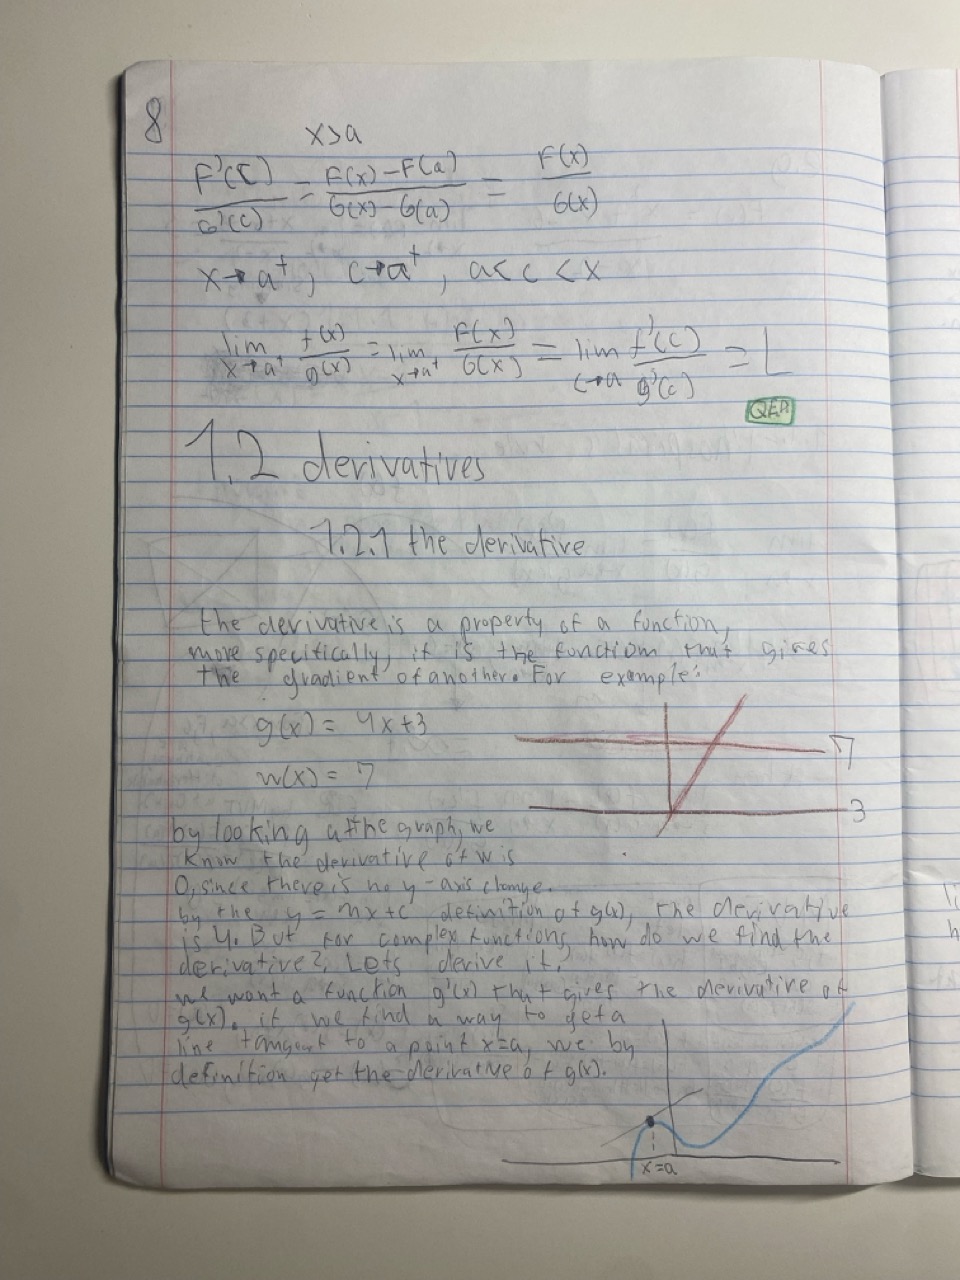 8
x>a
F'(c)/G'(c) = F(x)-F(a)/G(x)-G(a) = F(x)/G(x)
x→a⁺, c→a⁺, a<c<x
lim x→a⁺ f(x)/g(x) = lim x→a⁺ F(x)/G(x) = lim c→a f'(c)/g'(c) = L
QED
1.2 derivatives
1.2.1 the derivative
the derivative is a property of a function,
more specifically, it is the function that gives
the gradient of another. For example:
g(x) = 4x+3
w(x) = 7
7
3
by looking at the graph, we
know the derivative of w is
0, since there is no y-axis change.
by the y=mx+c definition of g(x), the derivative
is 4. But for complex functions, how do we find the
derivative? Lets derive it.
we want a function g'(x) that gives the derivative of
g(x). if we find a way to get a
line tangent to a point x=a, we by
definition get the derivative of g(x).
x=a